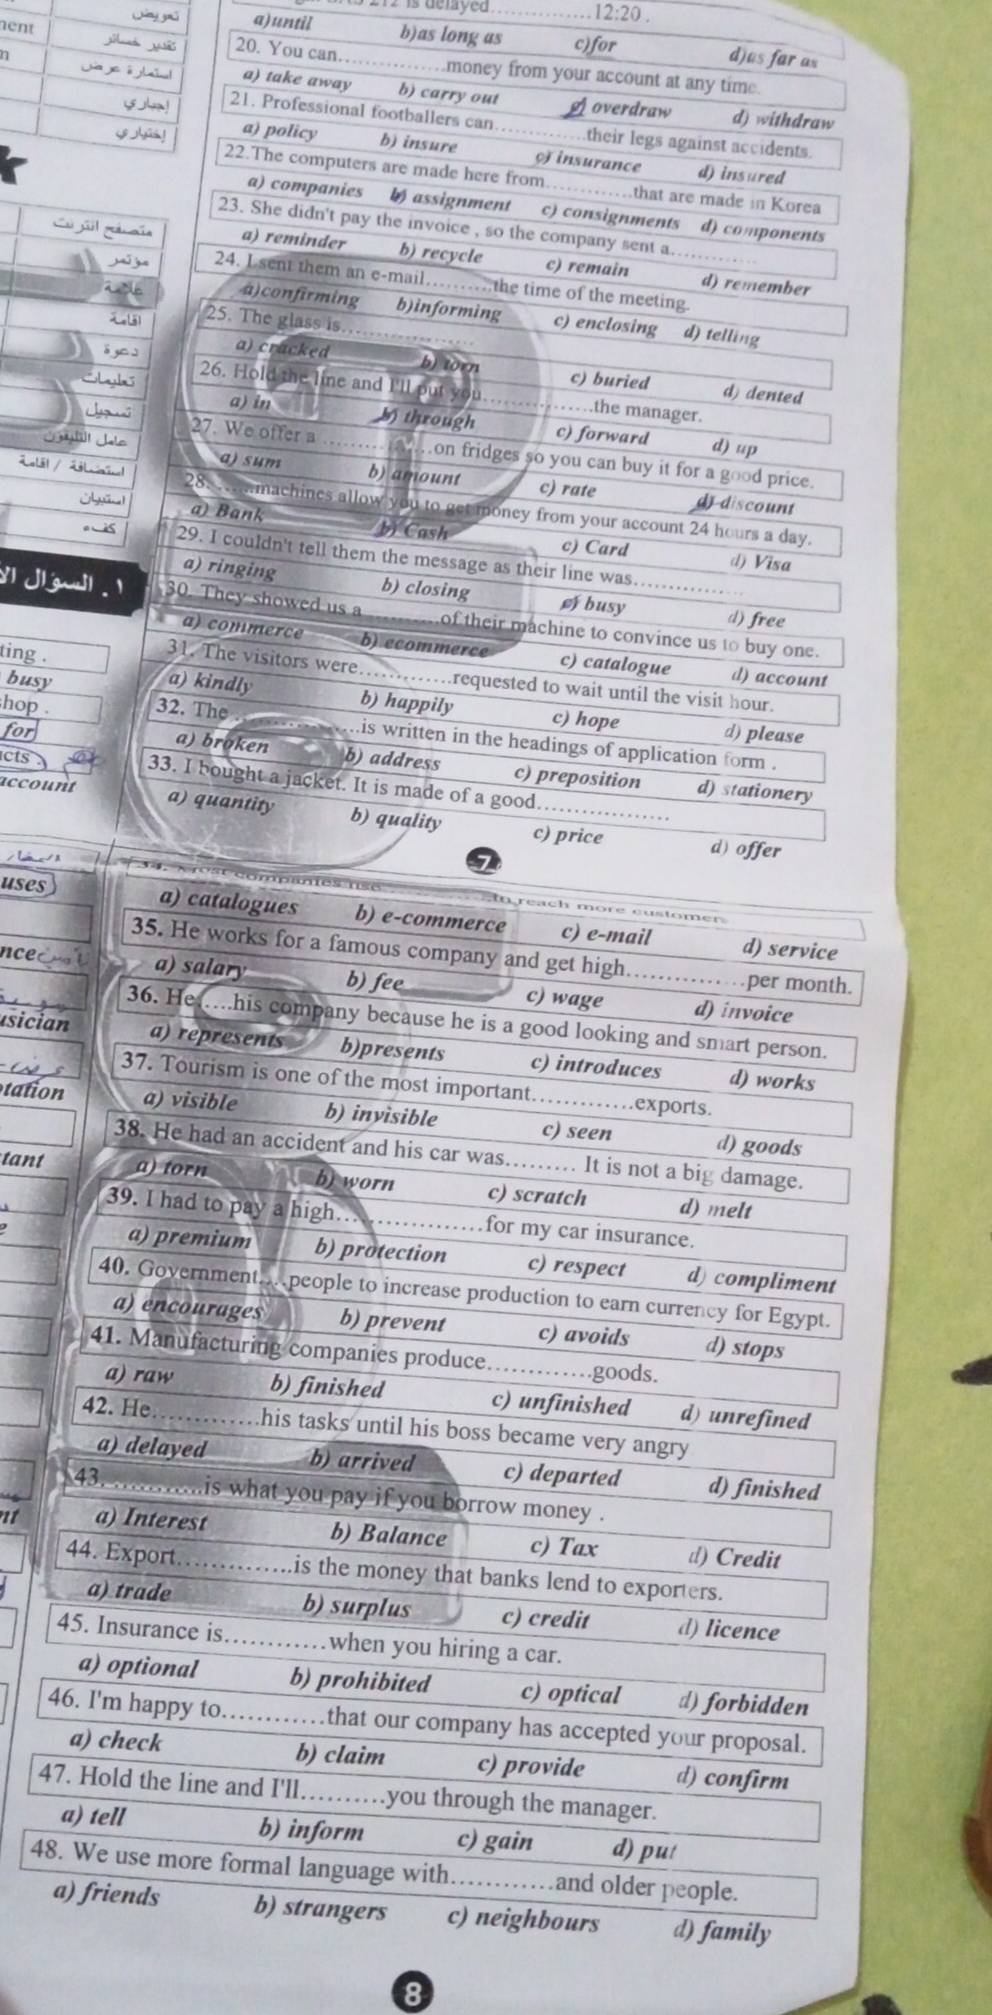 is delayed..................12:20 .
a)until b)as long as c)for d)as far as
20. You can..................money from your account at any time.
a) take away b) carry out c) overdraw d) withdraw
21. Professional footballers can...............their legs against accidents.
a) policy b) insure c) insurance d) insured
22.The computers are made here from..............that are made in Korea
a) companies b) assignment c) consignments d) components
23. She didn't pay the invoice , so the company sent a..............
a) reminder b) recycle c) remain d) remember
24. I sent them an e-mail...........the time of the meeting.
a)confirming b)informing c) enclosing d) telling
25. The glass is..................
a) cracked b) torn c) buried d) dented
26. Hold the line and I'll put you................the manager.
a) in b) through c) forward d) up
27. We offer a ................on fridges so you can buy it for a good price.
a) sum b) amount c) rate d) discount
28. ......machines allow you to get money from your account 24 hours a day.
a) Bank b) Cash c) Card d) Visa
29. I couldn't tell them the message as their line was...............
a) ringing b) closing c) busy d) free
30. They showed us a ............of their machine to convince us to buy one.
a) commerce b) ecommerce c) catalogue d) account
31. The visitors were..............requested to wait until the visit hour.
a) kindly b) happily c) hope d) please
32. The ..................is written in the headings of application form .
a) broken b) address c) preposition d) stationery
33. I bought a jacket. It is made of a good..................
a) quantity b) quality c) price d) offer
7
34. Most companies use ..............to reach more customers
a) catalogues b) e-commerce c) e-mail d) service
35. He works for a famous company and get high................per month.
a) salary b) fee c) wage d) invoice
36. He .....his company because he is a good looking and smart person.
a) represents b)presents c) introduces d) works
37. Tourism is one of the most important..............exports.
a) visible b) invisible c) seen d) goods
38. He had an accident and his car was.......... It is not a big damage.
a) torn b) worn c) scratch d) melt
39. I had to pay a high...................for my car insurance.
a) premium b) protection c) respect d) compliment
40. Government....people to increase production to earn currency for Egypt.
a) encourages b) prevent c) avoids d) stops
41. Manufacturing companies produce..............goods.
a) raw b) finished c) unfinished d) unrefined
42. He..............his tasks until his boss became very angry
a) delayed b) arrived c) departed d) finished
43. .............is what you pay if you borrow money .
a) Interest b) Balance c) Tax d) Credit
44. Export...............is the money that banks lend to exporters.
a) trade b) surplus c) credit d) licence
45. Insurance is.............when you hiring a car.
a) optional b) prohibited c) optical d) forbidden
46. I'm happy to.............that our company has accepted your proposal.
a) check b) claim c) provide d) confirm
47. Hold the line and I'll...........you through the manager.
a) tell b) inform c) gain d) put
48. We use more formal language with.............and older people.
a) friends b) strangers c) neighbours d) family
8
تعويض
استمارة عرض
اختياري
متصفح انترنت
مؤتمر
علامة
اقامة
دعوة
تعليمات
تسجيل
استضافة / اقامة
استبيان
كفء
١ . السؤال
ting .
busy
hop .
for
cts
account
uses
nce
usician
tation
tant
nt